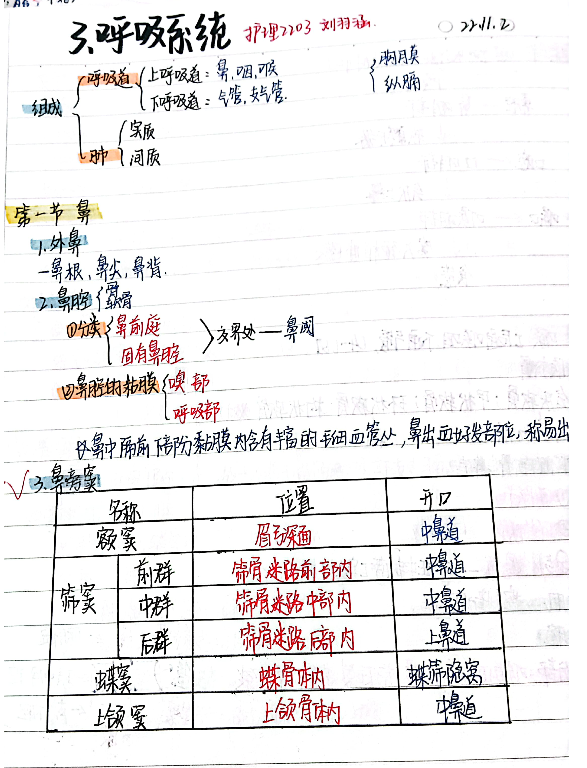 3.呼吸系统 护理2203 刘羽涵 22.11.2
呼吸道 上呼吸道:鼻,咽,喉 胸膜
组成 下呼吸道:气管,支气管. 纵膈
肺 实质
间质
第一节 鼻
1.外鼻
一鼻根、鼻尖,鼻背.
2.鼻腔 骨
软骨
①分类 鼻前庭 交界处——鼻阈
固有鼻腔
②鼻腔的黏膜 嗅部
呼吸部
鼻中隔前下部分黏膜内含有丰富的毛细血管丛,鼻出血好发部位,称易出
3.鼻旁窦
名称 位置 开口
额窦 眉弓深面 中鼻道
筛窦 前群 筛骨迷路前部内 中鼻道
中群 筛骨迷路中部内 中鼻道
后群 筛骨迷路后部内 上鼻道
蝶窦 蝶骨体内 蝶筛隐窝
上颌窦 上颌骨体内 中鼻道